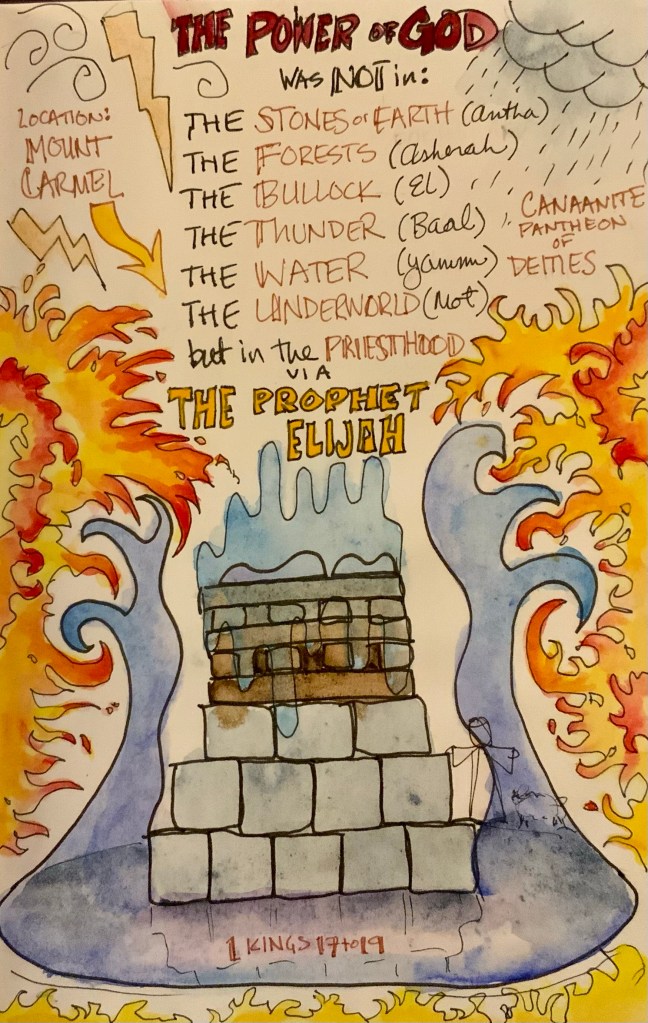 THE POWER OF GOD
WAS NOT in:
LOCATION:
MOUNT
CARMEL
THE STONES of EARTH (Antha)
THE FORESTS (Asherah)
THE BULLOCK (El)
THE THUNDER (Baal)
THE WATER (yamm)
THE UNDERWORLD (Mot)
CANAANITE
PANTHEON
OF
DEITIES
but in the PRIESTHOOD
VIA
THE PROPHET
ELIJAH
1 KINGS 17 to 19